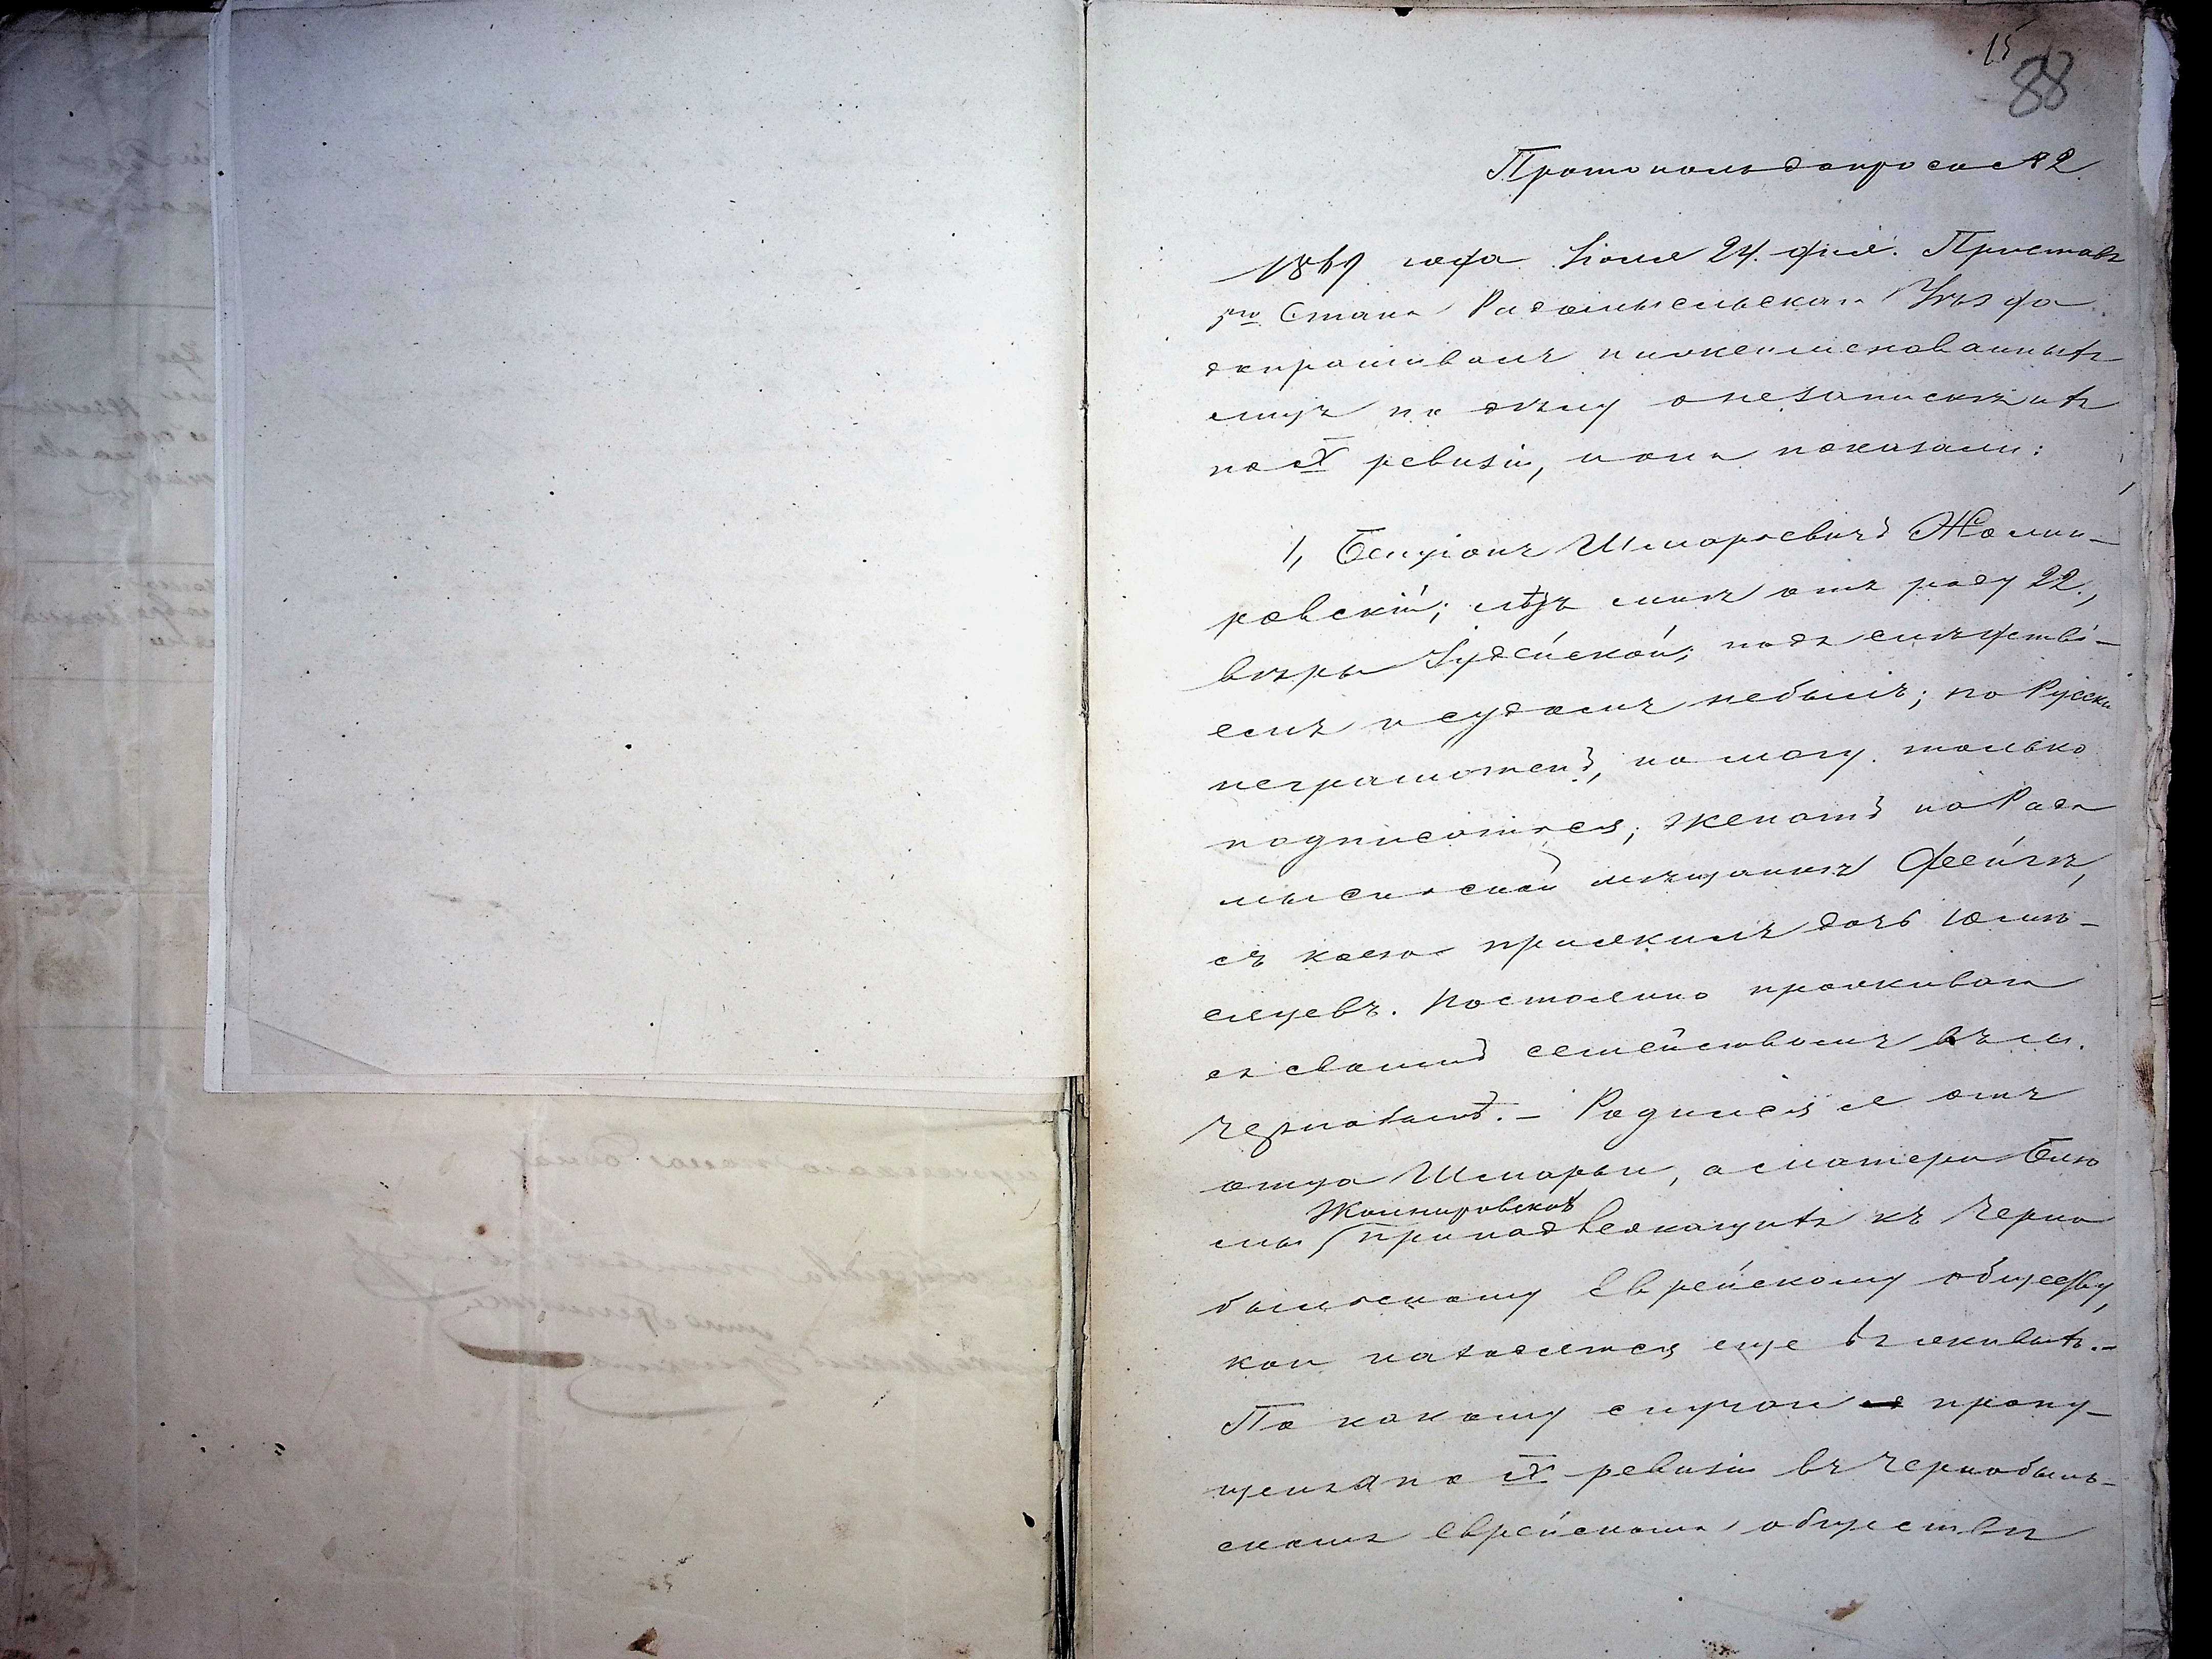 15
88
Протоколъ допроса № 2
1869 года Іюля 24. дня. Приставъ
5го Стана Радомысльскаго Уѣзда
допрашивалъ нижепоименованныхъ
лицъ по дѣлу о незапискѣ ихъ
по X ревизіи, и они показали:
1, Бенціонъ Шмарьевичъ Жолни-
ровскій; лѣтъ мнѣ отъ роду 22.,
вѣры Іудейской; подъ слѣдстві-
емъ и судомъ небылъ; по Русски
неграмотенъ, но могу только
подписатся; женатъ на Радо
мысльской мѣщанкѣ Фейгѣ,
съ коею прижилъ дочь
Постоянно проживаю
съ своимъ семействомъ въ м.
Чернобылѣ. – Родился я отъ
отца Шмарьи, а матери Блю
мы Жолнировскихъ
принадлежащихъ къ Черно
быльскому Еврейскому обществу,
кои находятся еще въ живыхъ. –
По какому случаю я пропу-
щенъ по X ревизіи въ Чернобыль-
скомъ Еврейскомъ обществѣ